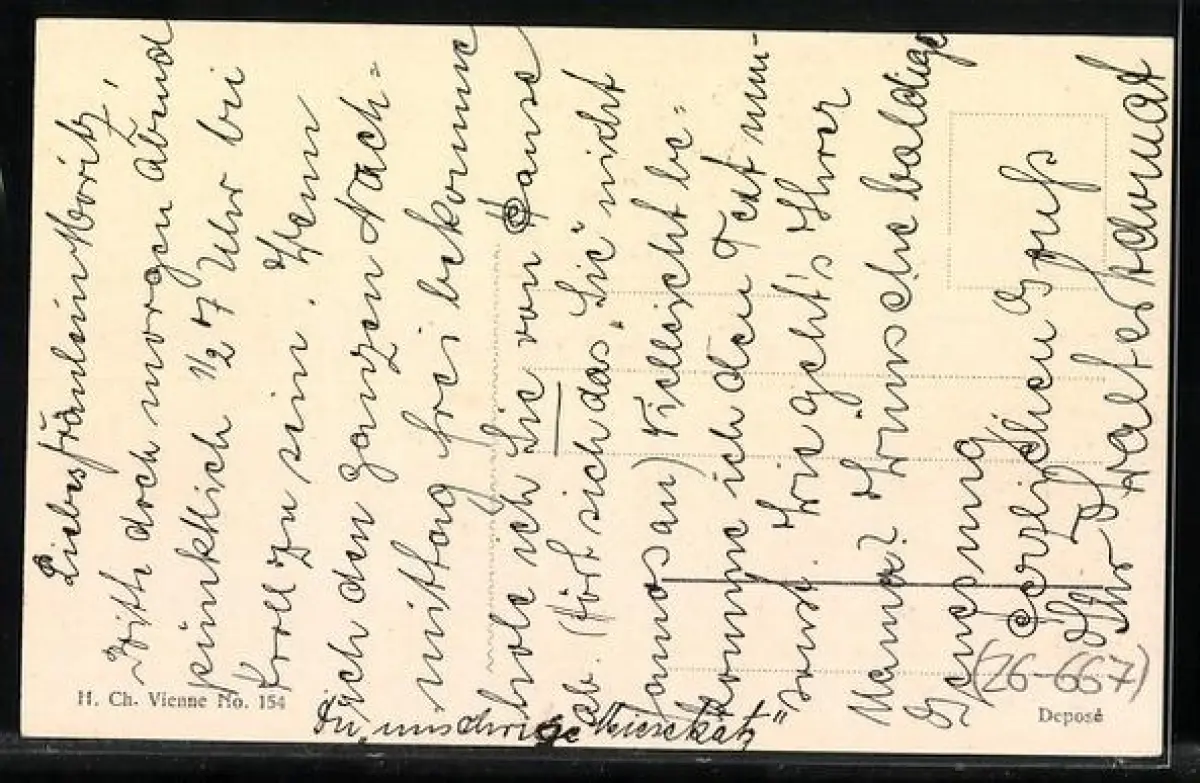 Liebes Fräulein Moritz,
Bitte doch morgen Abend
pünktlich 1/2 7 Uhr bei
Kroll zu sein. Wenn
ich den ganzen Nach=
mittag frei bekomme
hole ich Sie von Hause
ab. (Hört sich das „Sie" nicht
famos an) Vielleicht be=
komme ich den Text um-
sonst. Wie geht's Ihrer
Mama? Wünsche baldige
Genesung
Herzlichen Gruß
Ihr
Walter
Du „ Miesekatz"
(26-667)
H. Ch. Vienne No. 154
Deposé